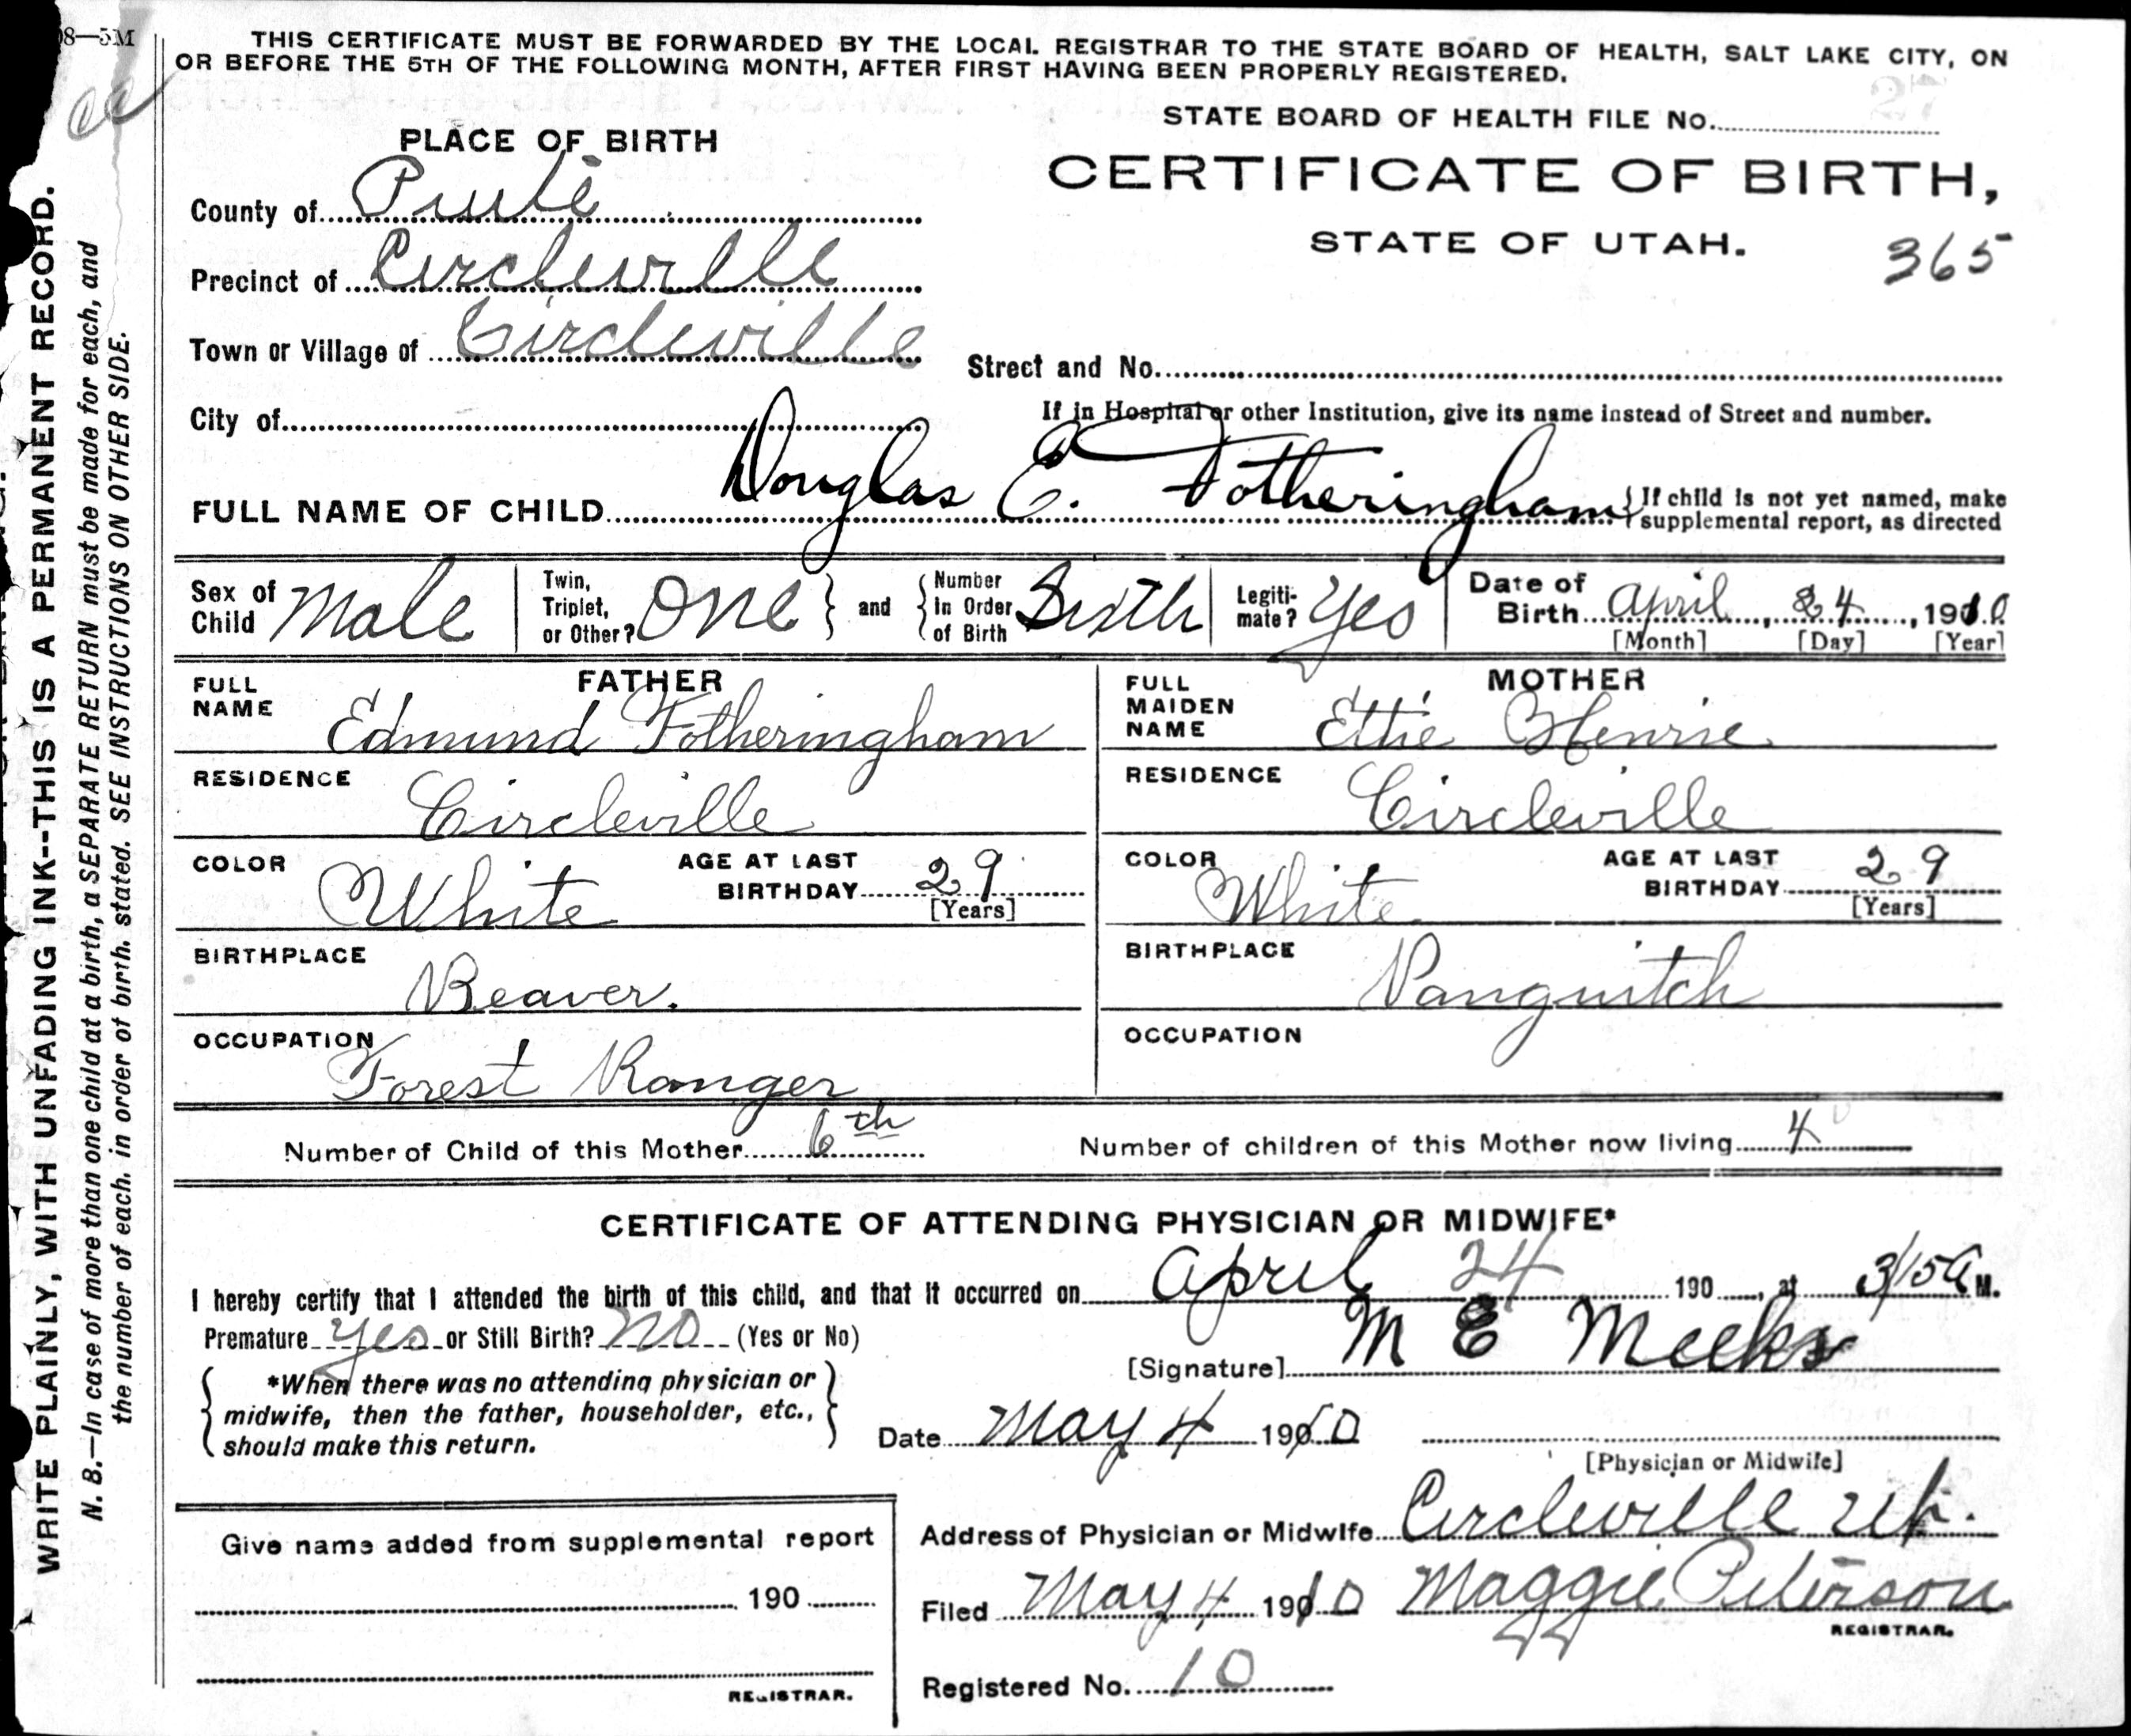 08—5M
THIS CERTIFICATE MUST BE FORWARDED BY THE LOCAL REGISTRAR TO THE STATE BOARD OF HEALTH, SALT LAKE CITY, ON
OR BEFORE THE 5TH OF THE FOLLOWING MONTH, AFTER FIRST HAVING BEEN PROPERLY REGISTERED.
STATE BOARD OF HEALTH FILE No.
PLACE OF BIRTH
CERTIFICATE OF BIRTH,
STATE OF UTAH.
365
County of Piute
Precinct of Circleville
Town or Village of Circleville
Street and No.
City of
If in Hospital or other Institution, give its name instead of Street and number.
FULL NAME OF CHILD Douglas E. Fotheringham { If child is not yet named, make
supplemental report, as directed
Sex of Child Male
Twin, Triplet, or Other? One } and { Number in Order of Birth Sixth
Legiti-mate? Yes
Date of Birth April, 24, 1910
[Month] [Day] [Year]
FATHER
FULL NAME Edmund Fotheringham
MOTHER
FULL MAIDEN NAME Ettie Henrie
RESIDENCE Circleville
RESIDENCE Circleville
COLOR White AGE AT LAST BIRTHDAY 29 [Years]
COLOR White AGE AT LAST BIRTHDAY 29 [Years]
BIRTHPLACE Beaver.
BIRTHPLACE Panguitch
OCCUPATION Forest Ranger
OCCUPATION
Number of Child of this Mother 6th Number of children of this Mother now living 4
CERTIFICATE OF ATTENDING PHYSICIAN OR MIDWIFE*
I hereby certify that I attended the birth of this child, and that it occurred on April 24 190 , at 3/15 A M.
Premature Yes or Still Birth? No (Yes or No)
[Signature] M E Meeks
*When there was no attending physician or
midwife, then the father, householder, etc.,
should make this return.
Date May 4 1910
[Physician or Midwife]
Address of Physician or Midwife Circleville Ut.
Give name added from supplemental report
190
REGISTRAR.
Filed May 4 1910 Maggie Peterson
REGISTRAR.
Registered No. 10
WRITE PLAINLY, WITH UNFADING INK--THIS IS A PERMANENT RECORD.
N. B.—In case of more than one child at a birth, a SEPARATE RETURN must be made for each, and
the number of each, in order of birth, stated. SEE INSTRUCTIONS ON OTHER SIDE.